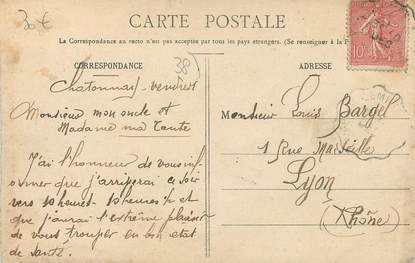 30€
CARTE POSTALE
La Correspondance au recto n'est pas acceptée par tous les pays étrangers. (Se renseigner à la
CORRESPONDANCE
38
ADRESSE
10
Chatonnay - vendredi
Monsieur mon oncle et
Madame ma tante
J'ai l'honneur de vous in-
former que j'arriverai ce soir
vers heures heures ½ et
que j'aurai l'extrême plaisir
de vous trouver en bon état
de santé.
Monsieur Louis Bargel
1 Rue Marseille
Lyon
(Rhône)